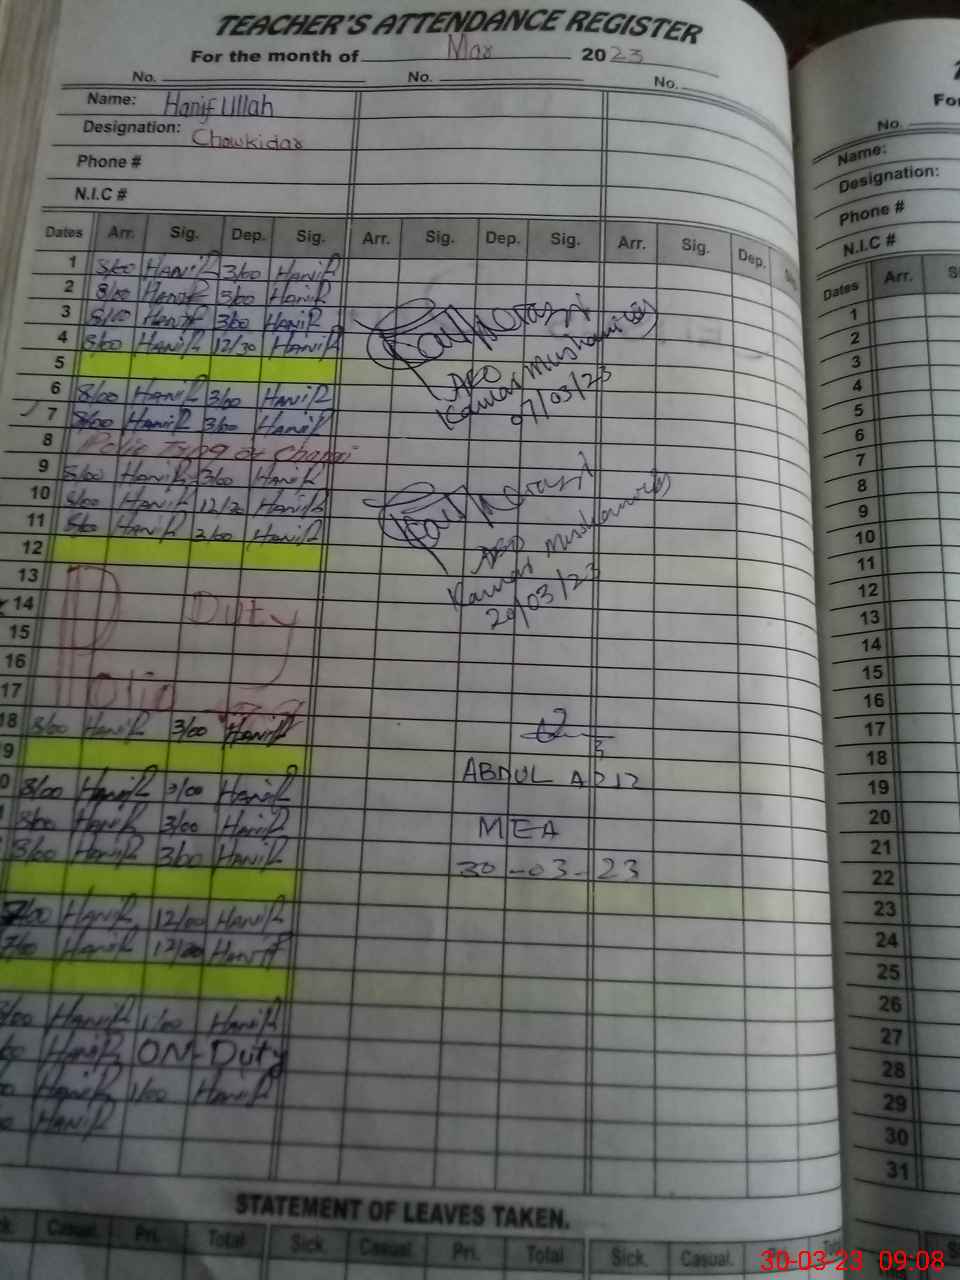 TEACHER'S ATTENDANCE REGISTER
For the month of Mar 2023
No. No. No.
Name: Hanif Ullah
Designation: Chowkidar
Phone #
N.I.C #
Dates Arr. Sig. Dep. Sig. Arr. Sig. Dep. Sig. Arr. Sig. Dep.
1 8/00 Hanif 3/00 Hanif
2 8/00 Hanif 3/00 Hanif
3 8/00 Hanif 3/00 Hanif
4 8/00 Hanif 12/30 Hanif
5
6 8/00 Hanif 3/00 Hanif
7 8/00 Hanif 3/00 Hanif
07/03/23
8
9 8/00 Hanif 3/00 Hanif
10 8/00 Hanif 12/30 Hanif
11 8/00 Hanif 3/00 Hanif
12
13
14 Duty
15
16
17 Polio
18 8/00 Hanif 3/00 Hanif
9
ABDUL AZIZ
0 8/00 Hanif 3/00 Hanif
8/00 Hanif 3/00 Hanif
MEA
8/00 Hanif 3/00 Hanif
30-03-23
Hanif 12/00 Hanif
7/00 Hanif Hanif
Hanif 1/00 Hanif
Hanif ON-Duty
Hanif 1/00 Hanif
Hanif
STATEMENT OF LEAVES TAKEN.
Casual. Pri. Total Sick. Casual. Pri. Total Sick. Casual. Pri.
No.
Name:
Designation:
Phone #
N.I.C #
Dates Arr.
1
2
3
4
5
6
7
8
9
10
11
12
13
14
15
16
17
18
19
20
21
22
23
24
25
26
27
28
29
30
31
30-03-23 09:08